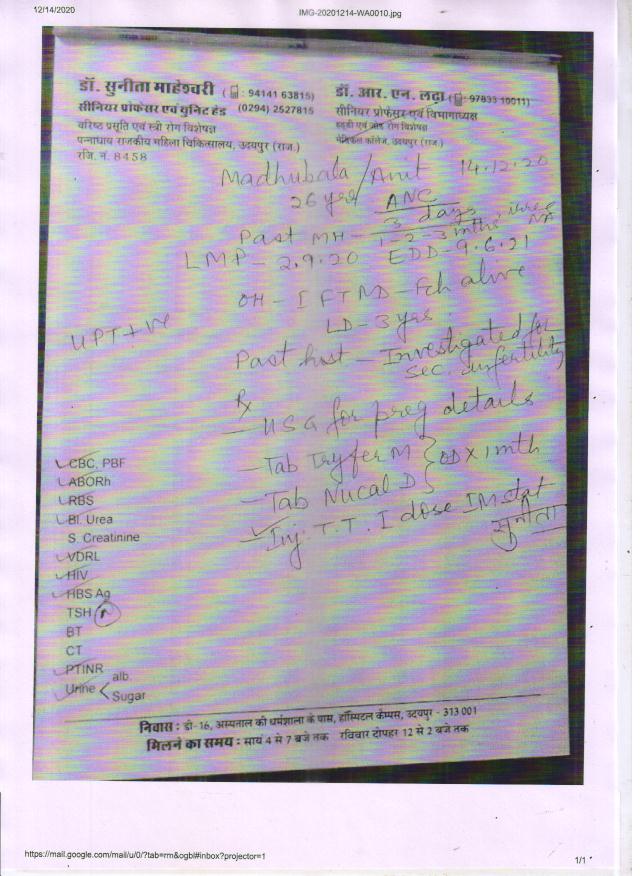 12/14/2020
IMG-20201214-WA0010.jpg
डॉ. सुनीता माहेश्वरी ( : 94141 63815)
सीनियर प्रोफेसर एवं युनिट हेड (0294) 2527815
वरिष्ठ प्रसूति एवं स्त्री रोग विशेषज्ञ
पन्नाधाय राजकीय महिला चिकित्सालय, उदयपुर (राज.)
रजि. नं. 8458
डॉ. आर. एन. लढ़ा ( : 97833 10011)
सीनियर प्रोफेसर एवं विभागाध्यक्ष
हड्डी एवं जोड़ रोग विशेषज्ञ
मेडिकल कॉलेज, उदयपुर (राज.)
Madhubala / Amit 14.12.20
26 yrs/ ANC
Past MH - 3 days
1-2-3 mths
LMP - 2.9.20 EDD - 9.6.21
OH - I FTND - Fch alive
LD - 3 yrs
UPT +ve
Past hist - Investigated for
sec. infertility
Rx
- USG for preg details
- Tab Tryfer M } OD x 1 mth
- Tab Nucal D
Inj. T.T. I dose IM stat
सुनीता
CBC, PBF
ABORh
RBS
Bl. Urea
S. Creatinine
VDRL
HIV
HBS Ag
TSH
BT
CT
PTINR
Urine < alb.
Sugar
निवास : डी-16, अस्पताल की धर्मशाला के पास, हॉस्पिटल केम्पस, उदयपुर - 313 001
मिलने का समय : सायं 4 से 7 बजे तक रविवार दोपहर 12 से 2 बजे तक
https://mail.google.com/mail/u/0/?tab=rm&ogbl#inbox?projector=1
1/1